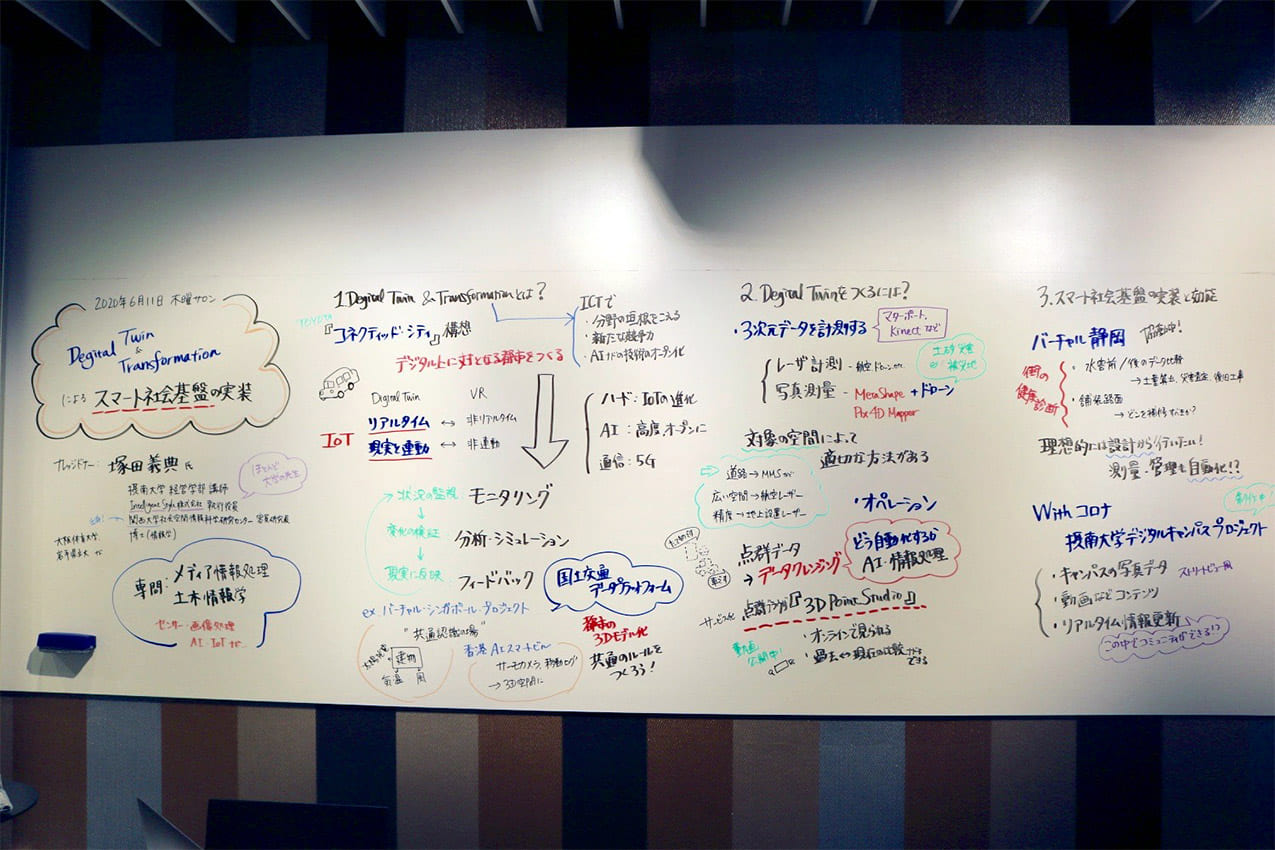 2020年6月11日 木曜サロン
Degital Twin
&
Transformation
による スマート社会基盤の実装
ナレッジドナー: 塚田義典 氏
ほとんど
大学の先生
摂南大学 経営学部 講師
Intelligent Style株式会社 執行役員
関西大学社会空間情報科学研究センター 客員研究員
博士(情報学)
大阪体育大学、
岩手県立大 など
専門:メディア情報処理
土木情報学
センサー・画像処理
AI・IoT など…
1. Degital Twin & Transformationとは?
TOYOTA
『コネクティッド・シティ』構想
デジタル上に対となる都市をつくる
ICTで
・分野の垣根をこえる
・新たな競争力
・AIなどの技術のオープン化
Digital Twin
VR
IoT
リアルタイム ↔ 非リアルタイム
現実と連動 ↔ 非連動
ハード:IoTの進化
AI:高度、オープンに
通信:5G
→状況の監視 モニタリング
↓
変化の検証 分析・シミュレーション
↓
現実に反映 フィードバック
国土交通
データプラットフォーム
ex. バーチャル・シンガポール・プロジェクト
"共通認識の場"
太陽光発電
建物
気温 風
香港 AIスマートビル
サーモカメラ、移動ログ
→3D空間に
都市の
3Dモデル化
共通のルールを
つくろう!
2. Degital Twinをつくるには?
・3次元データを計測する
マターポート、
Kinect など
レーザ計測
写真測量 - MetaShape + ドローン
Pix4D Mapper
土砂災害
の 被災地
対象の空間によって
適切な方法がある
道路→MMS など
広い空間→航空レーザー
精度→地上設置レーザー
・オペレーション
点群データ
→データクレンジング
どう自動化するか
AI・情報処理
サービス化 点群ブラウザ『3D Point Studio』
動画
公開中!
・オンラインで見られる
・過去や現在の比較などもできる
3. スマート社会基盤の実装と効能
バーチャル静岡 協働中!
街の
健康診断
・水害前/後のデータ比較
→土量算出、災害査定、復旧工事
・舗装路面
→どこを補修すべきか?
理想的には設計から行いたい!
測量・管理も自動化!?
With コロナ
制作中
摂南大学デジタルキャンパスプロジェクト
・キャンパスの写真データ ストリートビュー風
・動画などコンテンツ
・リアルタイム情報更新
この中でコミュニケができる!?